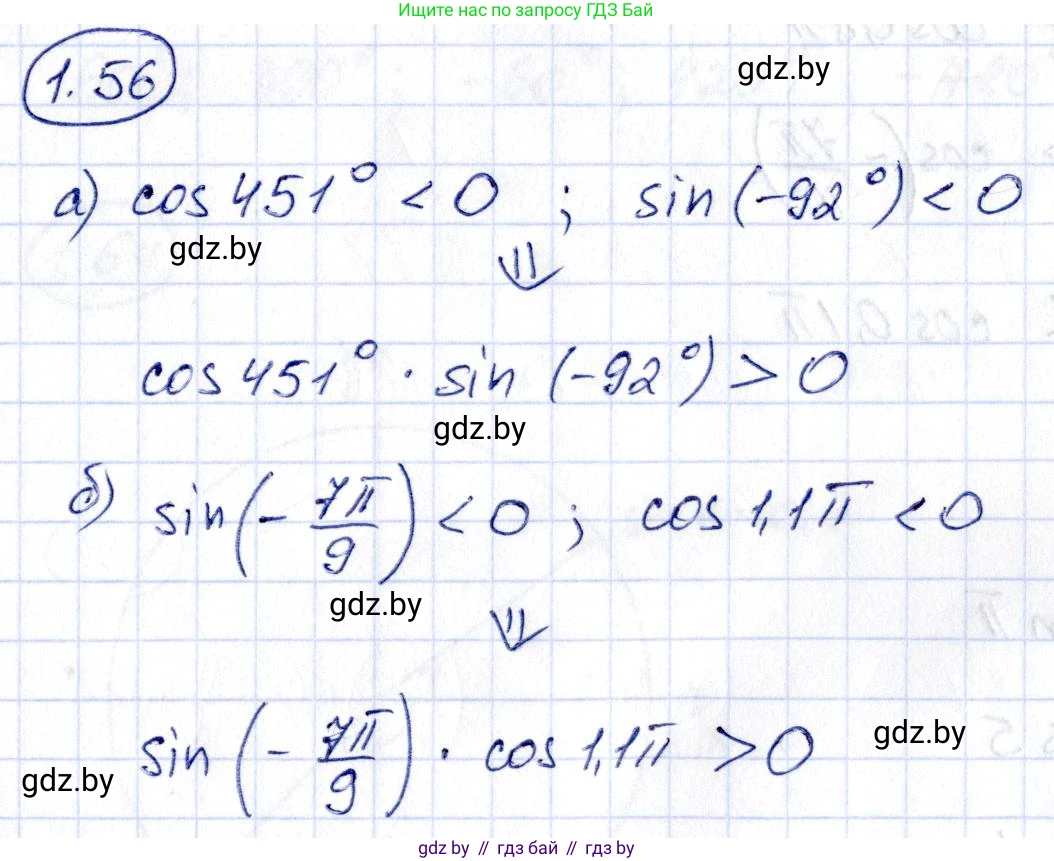 Ищите нас по запросу ГДЗ Бай
1.56
gdz.by
а) cos 451° < 0 ; sin (-92°) < 0
gdz.by
⇓
cos 451° · sin (-92°) > 0
gdz.by
б) sin(-7π/9) < 0 ; cos 1,1π < 0
gdz.by
⇓
sin(-7π/9) · cos 1,1π > 0
gdz.by
gdz.by
gdz by // гдз бай // gdz by